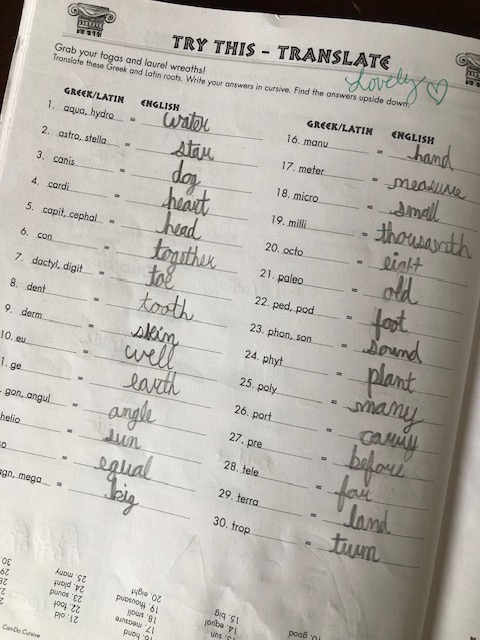 TRY THIS - TRANSLATE
Grab your togas and laurel wreaths!
Translate these Greek and Latin roots. Write your answers in cursive. Find the answers upside down.
Lovely ♡
GREEK/LATIN ENGLISH
1. aqua, hydro = water
2. astro, stella = star
3. canis = dog
4. cardi = heart
5. capit, cephal = head
6. con = together
7. dactyl, digit = toe
8. dent = tooth
9. derm = skin
10. eu = well
1. ge = earth
gon, angul = angle
helio = sun
so = equal
agn, mega = big
GREEK/LATIN ENGLISH
16. manu = hand
17. meter = measure
18. micro = small
19. milli = thousanth
20. octo = eight
21. paleo = old
22. ped, pod = foot
23. phon, son = sound
24. phyt = plant
25. poly = many
26. port = carry
27. pre = before
28. tele = far
29. terra = land
30. trop = turn
21. old
22 foot
23. sound
24. plant
25. many
16 hand
17. measure
18. small
19 thousand
20. eight
13. sun
14 equal
15. big
10. good
CanDo Cursive